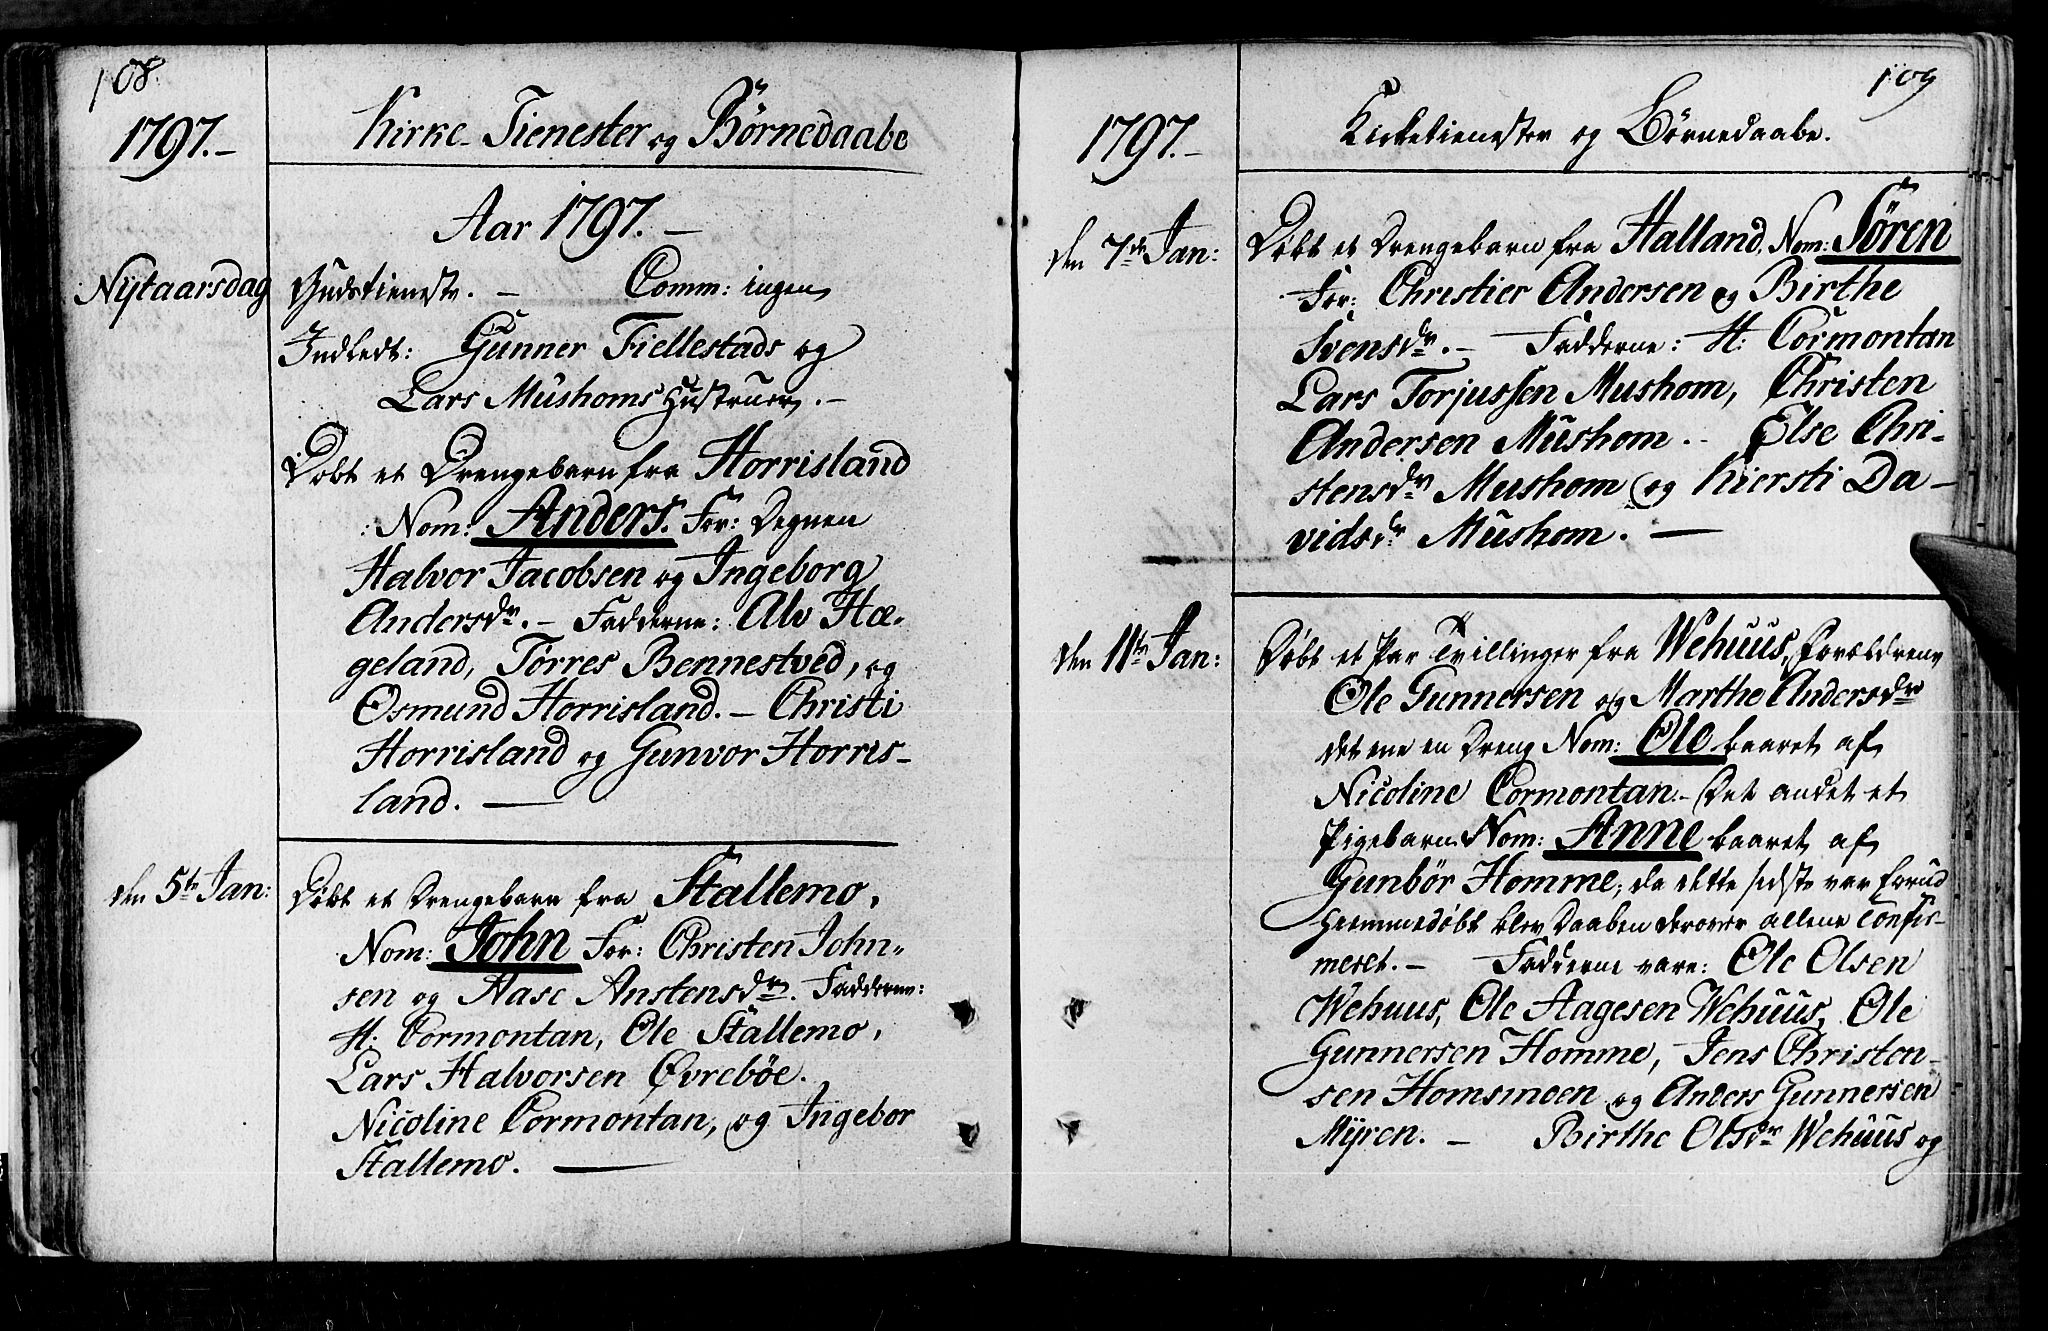 108.
1797.-
Kirke-Tienester og Børnedaabe
Aar 1797. -
Nytaarsdag
Gudstieneste. - Comm: ingen
Indledt: Gunner Fiellestads og
Lars Mushoms Hustruer. -
Døbt et Drengebarn fra Horrisland
Nom: Anders. For: Degnen
Halvor Jacobsen og Ingeborg
Andersdr. - Fadderne: Alv Hæ-
geland, Torres Bennestved, og
Osmund Horrisland. - Christi
Horrisland og Gunvor Horris-
land. -
den 5te Jan:
Døbt et Drengebarn fra Stallemo,
Nom: John For: Christen John-
sen og Aase Anstensdr. Fadderne:
H. Cormontan, Ole Stallemo,
Lars Halvorsen Øvrebøe.
Nicoline Cormontan, og Ingebor
Stallemo. -
109
1797.-
Kirketienester og Børnedaabe.
den 7de Jan:
Døbt et Drengebarn fra Halland, Nom: Sören
For: Christier Andersen og Birthe
Svensdr. - Fadderne: H: Cormontan
Lars Torjussen Mushom, Christen
Andersen Mushom. - Else Chri-
stensdr Mushom og Kiersti Da-
vidsdr Mushom. -
den 11te Jan:
Døbt et Par Tvillinger fra Wehuus, Forældrene
Ole Gunnersen og Marthe Andersdr
det ene en Dreng Nom: Ole baaret af
Nicoline Cormontan. - Det andet et
Pigebarn Nom: Anne baaret af
Gunbör Homme; da dette sidste var forud
hiemmedøbt blev Daaben derover allene Confir-
meret. - Fadderne vare: Ole Olsen
Wehuus, Ole Aagesen Wehuus, Ole
Gunnersen Homme, Jens Christen-
sen Homsmoen og Anders Gunnersen
Myren. - Birthe Olsdr Wehuus og